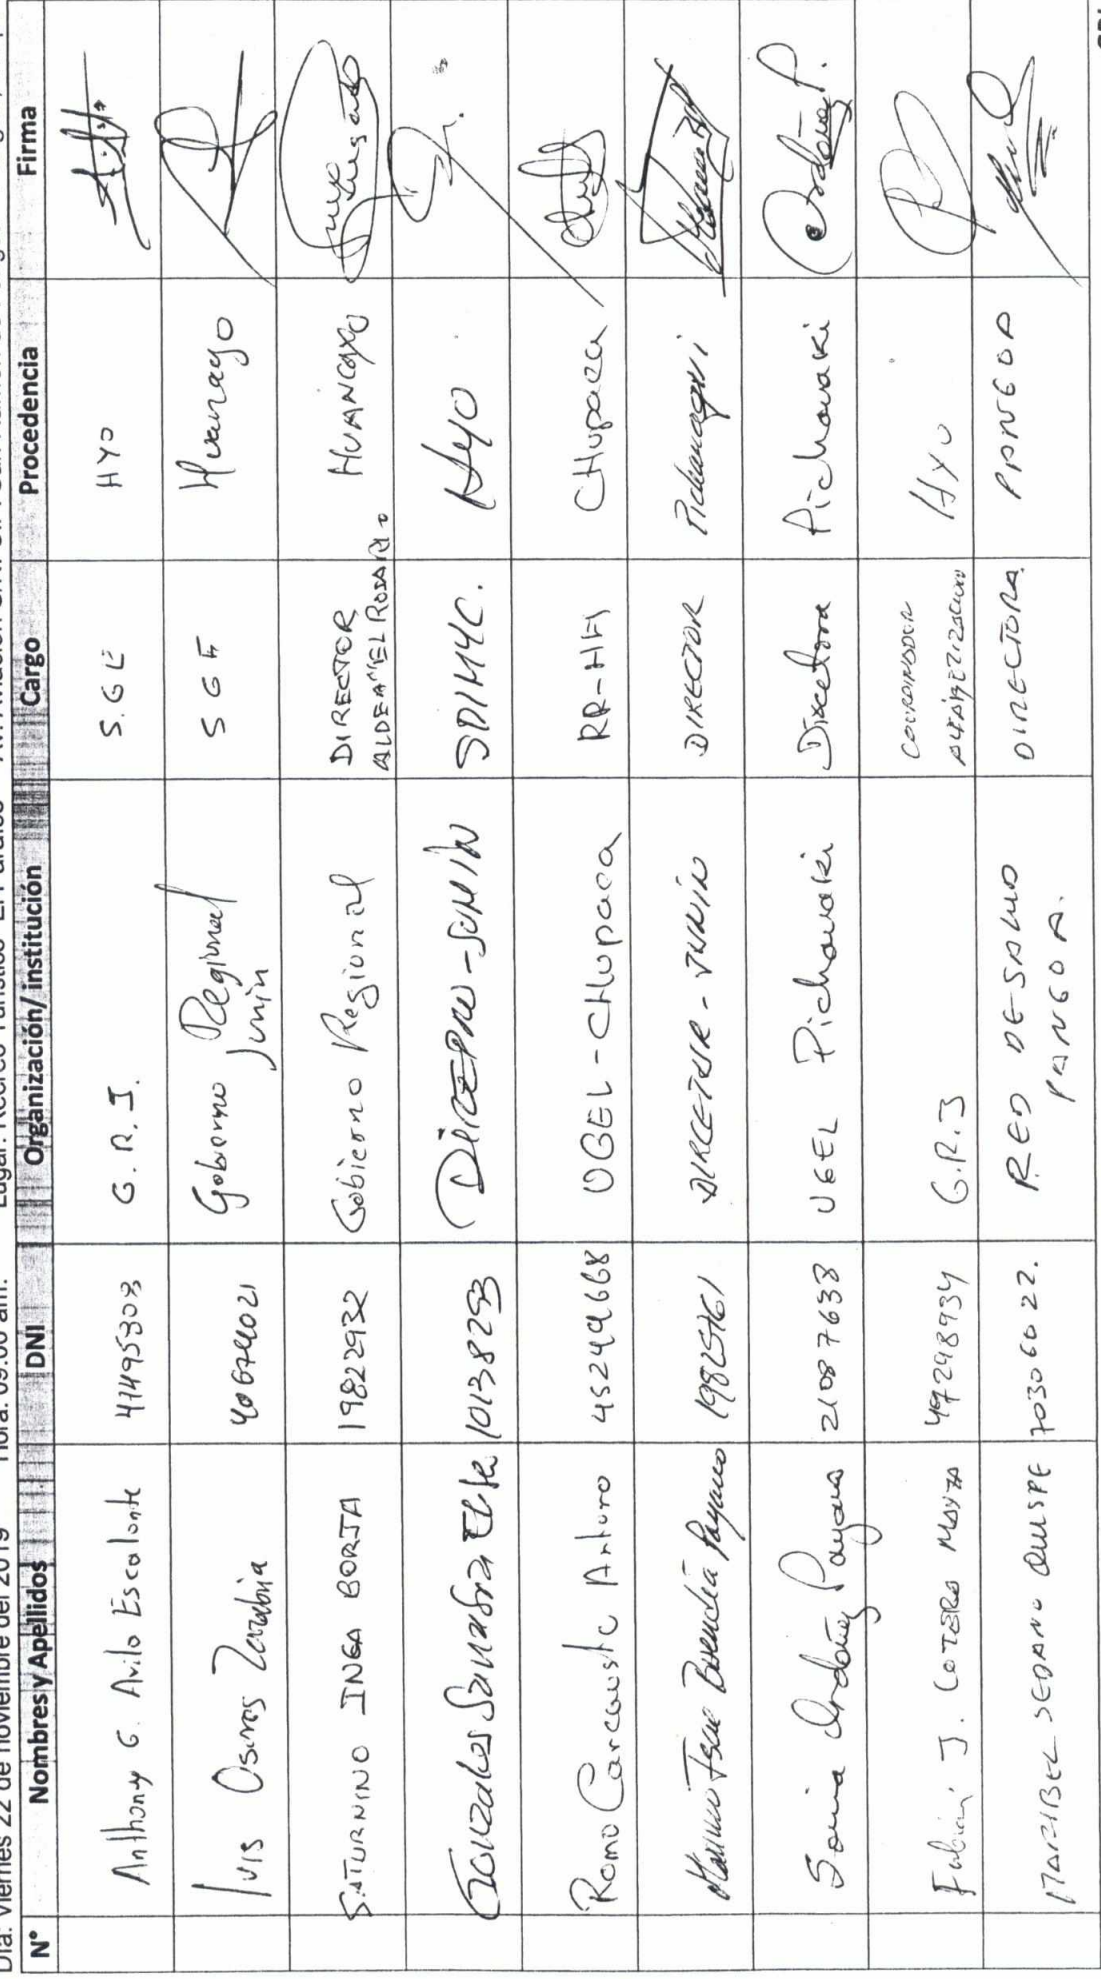 Día: Viernes 22 de noviembre del 2019 Hora: 09:00 am. Lugar: Recreo Turístico "El Paraíso"
N° Nombres y Apellidos DNI Organización/ institución Cargo Procedencia Firma
Anthony G. Avila Escalante 41495303 G. R. J. S.G.E HYO
Luis Osores Zarabia 40674021 Gobierno Regional Junin S G E Huancayo
SATURNINO INGA BORJA 19822932 Gobierno Regional DIRECTOR ALDEA "EL ROSARIO HUANCAYO
Gonzales Sanabria Elsa 10138293 JUNIN SDIMYC. HYO
Romo Carcausto Arturo 45249668 UGEL - CHUPACA RR-HH CHUPACA
Buendía Payano 19825761 DIRCETUR - JUNÍN DIRECTOR Pichanaqui
Sonia Ordoñez Payana 21087633 UGEL Pichanaki Directora Pichanaki
J. COTERA MAYTA 47298934 G.R.J COORDINADOR HYO
MARIBEL SEDANO QUISPE 70306022. RED DE SALUD PANGOA. DIRECTORA. PANGOA